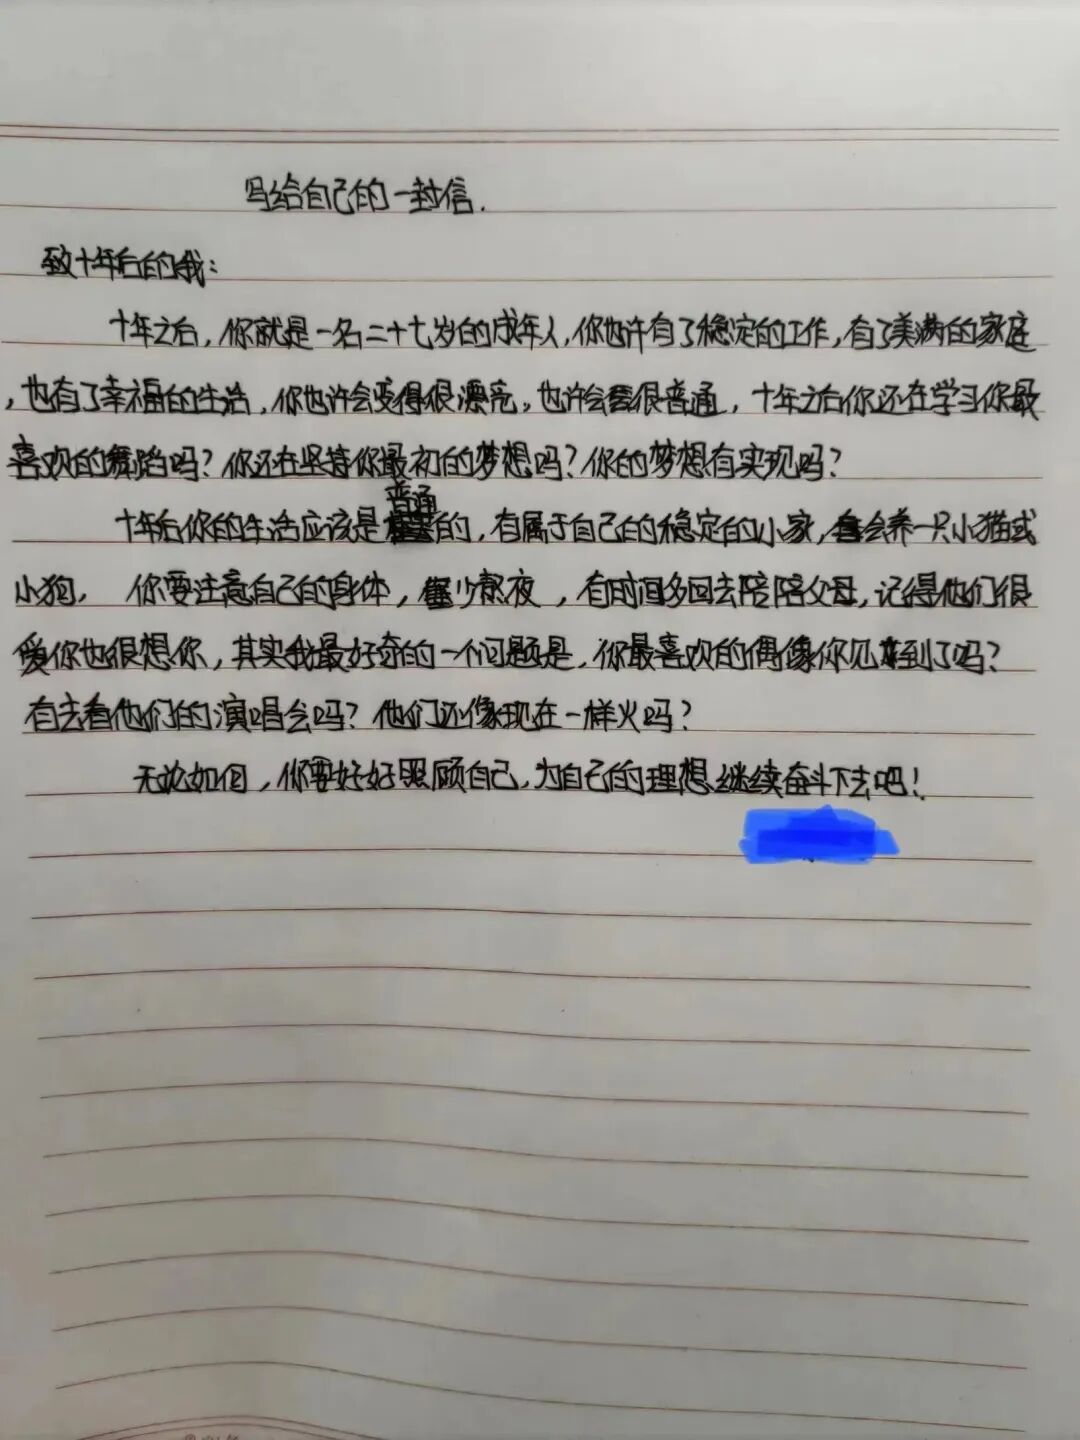 写给自己的一封信.
致十年后的我:
十年之后,你就是一名二十七岁的成年人,你也许有了稳定的工作,有了美满的家庭
,也有了幸福的生活,你也许会变得很漂亮,也许会很普通,十年之后你还在学习你最
喜欢的舞蹈吗?你还在坚持你最初的梦想吗?你的梦想有实现吗?
十年后你的生活应该是普通的,有属于自己的稳定的小家,会养一只小猫或
小狗,你要注意自己的身体,少熬夜,有时间多回去陪陪父母,记得他们很
爱你也很想你,其实我最好奇的一个问题是,你最喜欢的偶像你见到了吗?
有去看他们的演唱会吗?他们还像现在一样火吗?
无论如何,你要好好照顾自己,为自己的理想继续奋斗下去吧!